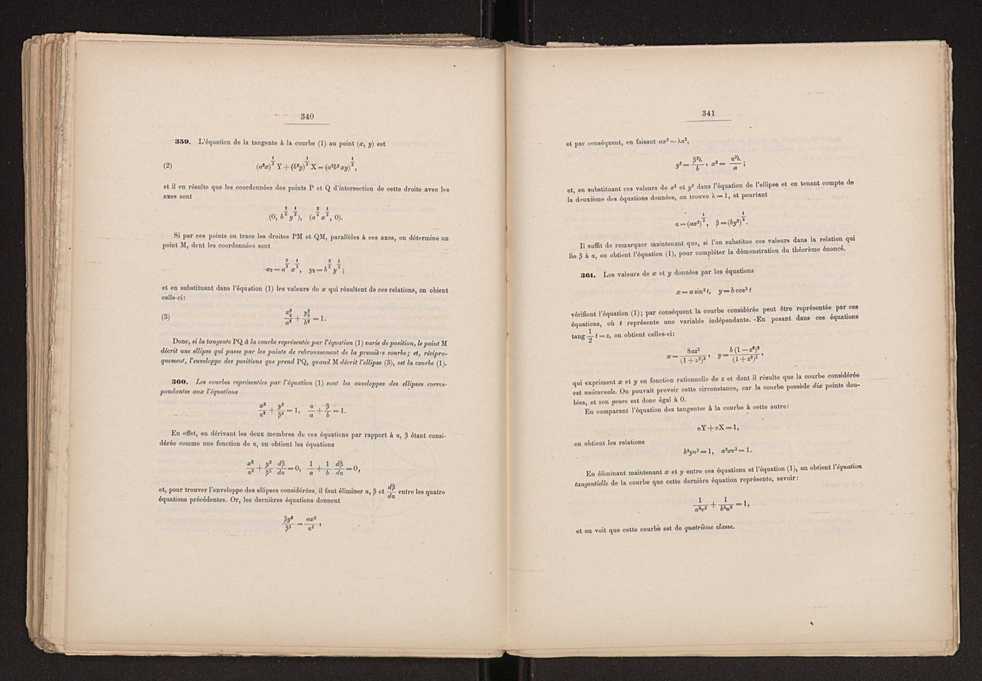 340
359. L'équation de la tangente à la courbe (1) au point (x, y) est
(2) (a²x)^{1/3} Y + (b²y)^{1/3} X = (a²b² xy)^{1/3},
et il en résulte que les coordonnées des points P et Q d'intersection de cette droite avec les
axes sont
(0, b^{2/3} y^{1/3}), (a^{2/3} x^{1/3}, 0).
Si par ces points on trace les droites PM et QM, parallèles à ces axes, on détermine un
point M, dont les coordonnées sont
x₂ = a^{2/3} x^{1/3}, y₂ = b^{2/3} y^{1/3};
et en substituant dans l'équation (1) les valeurs de x qui résultent de ces relations, on obient
celle-ci:
(3) x₂²/a² + y₂²/b² = 1.
Donc, si la tangente PQ à la courbe représentée par l'équation (1) varie de position, le point M
décrit une ellipse qui passe par les points de rebroussement de la première courbe; et, récipro-
quement, l'enveloppe des positions que prend PQ, quand M décrit l'ellipse (3), est la courbe (1).
360. Les courbes représentées par l'équation (1) sont les enveloppes des ellipses corres-
pondantes aux l'équations
x²/α² + y²/β² = 1, α/a + β/b = 1.
En effet, en dérivant les deux membres de ces équations par rapport à α, β étant consi-
dérée comme une fonction de α, on obtient les équations
x²/α³ + y²/β³ dβ/dα = 0, 1/a + 1/b dβ/dα = 0,
et, pour trouver l'enveloppe des ellipses considérées, il faut éliminer α, β et dβ/dα entre les quatre
équations précédentes. Or, les dernières équations donnent
by²/β³ = ax²/α³,
341
et par conséquent, en faisant ax² = λα³,
y² = β³λ/b, x² = α³λ/a;
et, en substituant ces valeurs de x² et y² dans l'équation de l'ellipse et en tenant compte de
la deuxième des équations données, on trouve λ = 1, et pourtant
α = (ax²)^{1/3}, β = (by²)^{1/3}.
Il suffit de remarquer maintenant que, si l'on substitue ces valeurs dans la relation qui
lie β à α, on obtient l'équation (1), pour compléter la démonstration du théorème énoncé.
361. Les valeurs de x et y données par les équations
x = a sin³ t, y = b cos³ t
vérifient l'équation (1); par conséquent la courbe considérée peut être représentée par ces
équations, où t représente une variable indépendante. En posant dans ces équations
tang 1/2 t = z, on obtient celles-ci:
x = 8az³/(1 + z²)³, y = b(1 − z²)³/(1 + z²)³,
qui expriment x et y en fonction rationnelle de z et dont il résulte que la courbe considérée
est unicursale. On pouvait prevoir cette circonstance, car la courbe possède dix points dou-
bles, et son genre est donc égal à 0.
En comparant l'équation des tangentes à la courbe à cette autre:
uY + vX = 1,
on obtient les relations
b²yu³ = 1, a²xv³ = 1.
En éliminant maintenant x et y entre ces équations et l'équation (1), on obtient l'équation
tangentielle de la courbe que cette dernière équation représente, savoir:
1/a²v² + 1/b²u² = 1,
et on voit que cette courbe est de quatrième classe.